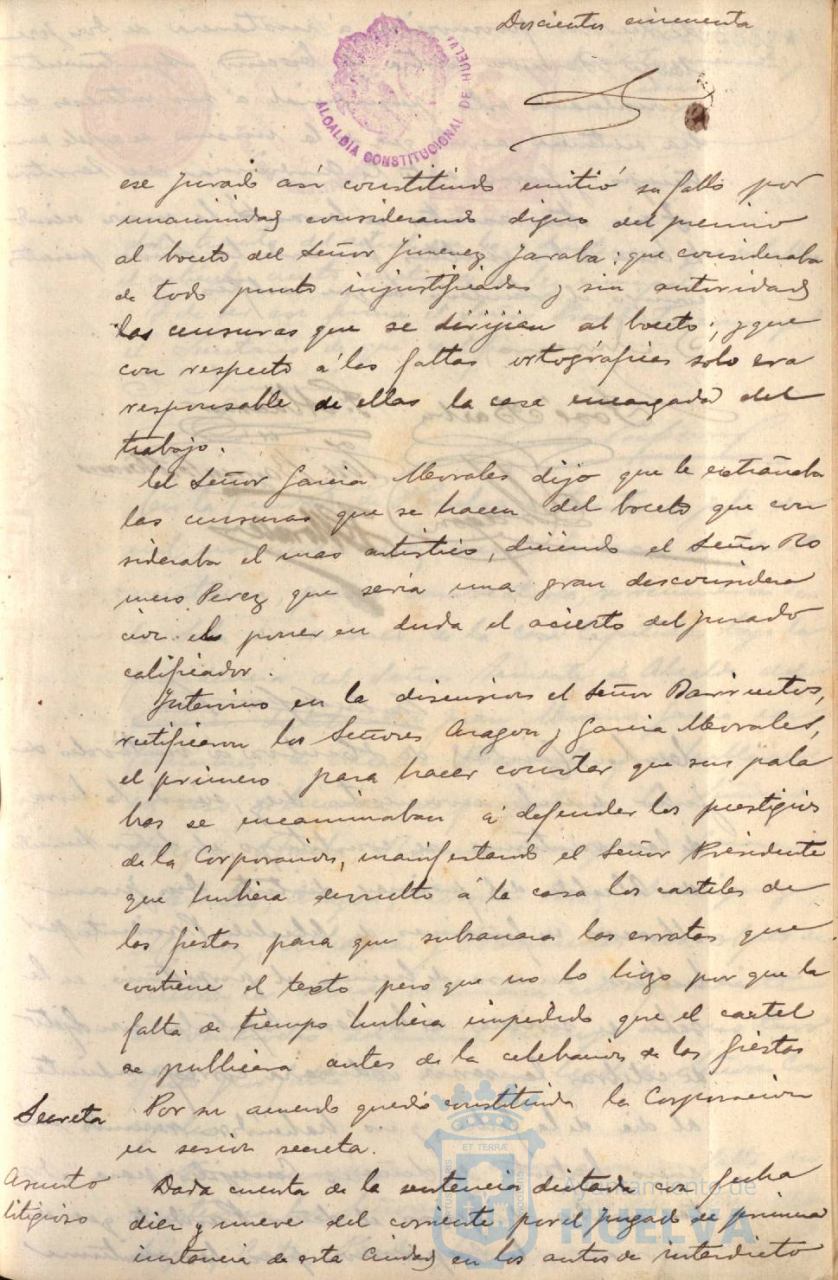 Doscientos cincuenta
ALCALDIA CONSTITUCIONAL DE HUELVA
ese Jurado así constituido emitió su fallo por
unanimidad considerando digno del premio
al boceto del Señor Jimenez Jaraba; que consideraba
de todo punto injustificadas y sin autoridad
las censuras que se dirijian al boceto; y que
con respecto á las faltas ortográficas solo era
responsable de ellas la casa encargada del
trabajo.
El Señor Garcia Morales dijo que le extrañaba
las censuras que se hacen del boceto que con
sideraba el mas artistico, diciendo el Señor Ro
mero Perez que seria una gran desconsidera
cion el poner en duda el acierto del Jurado
calificador.
Intervino en la discusion el Señor Barrientos,
rectificaron los Señores Aragon y Garcia Morales,
el primero para hacer constar que sus pala
bras se encaminaban á defender los prestigios
de la Corporacion, manifestando el Señor Presidente
que hubiera devuelto á la casa los carteles de
las fiestas para que subsanara las erratas que
contiene el texto pero que no lo hizo por que la
falta de tiempo hubiera impedido que el cartel
se publicara antes de la celebracion de las fiestas
Secreta
Por su acuerdo quedó constituida la Corporacion
en sesion secreta.
Asunto
litigioso
Dada cuenta de la sentencia dictada con fecha
diez y nueve del corriente por el Juzgado de primera
instancia de esta Ciudad en los autos de interdicto
ET TERRÆ
Ayuntamiento de
HUELVA